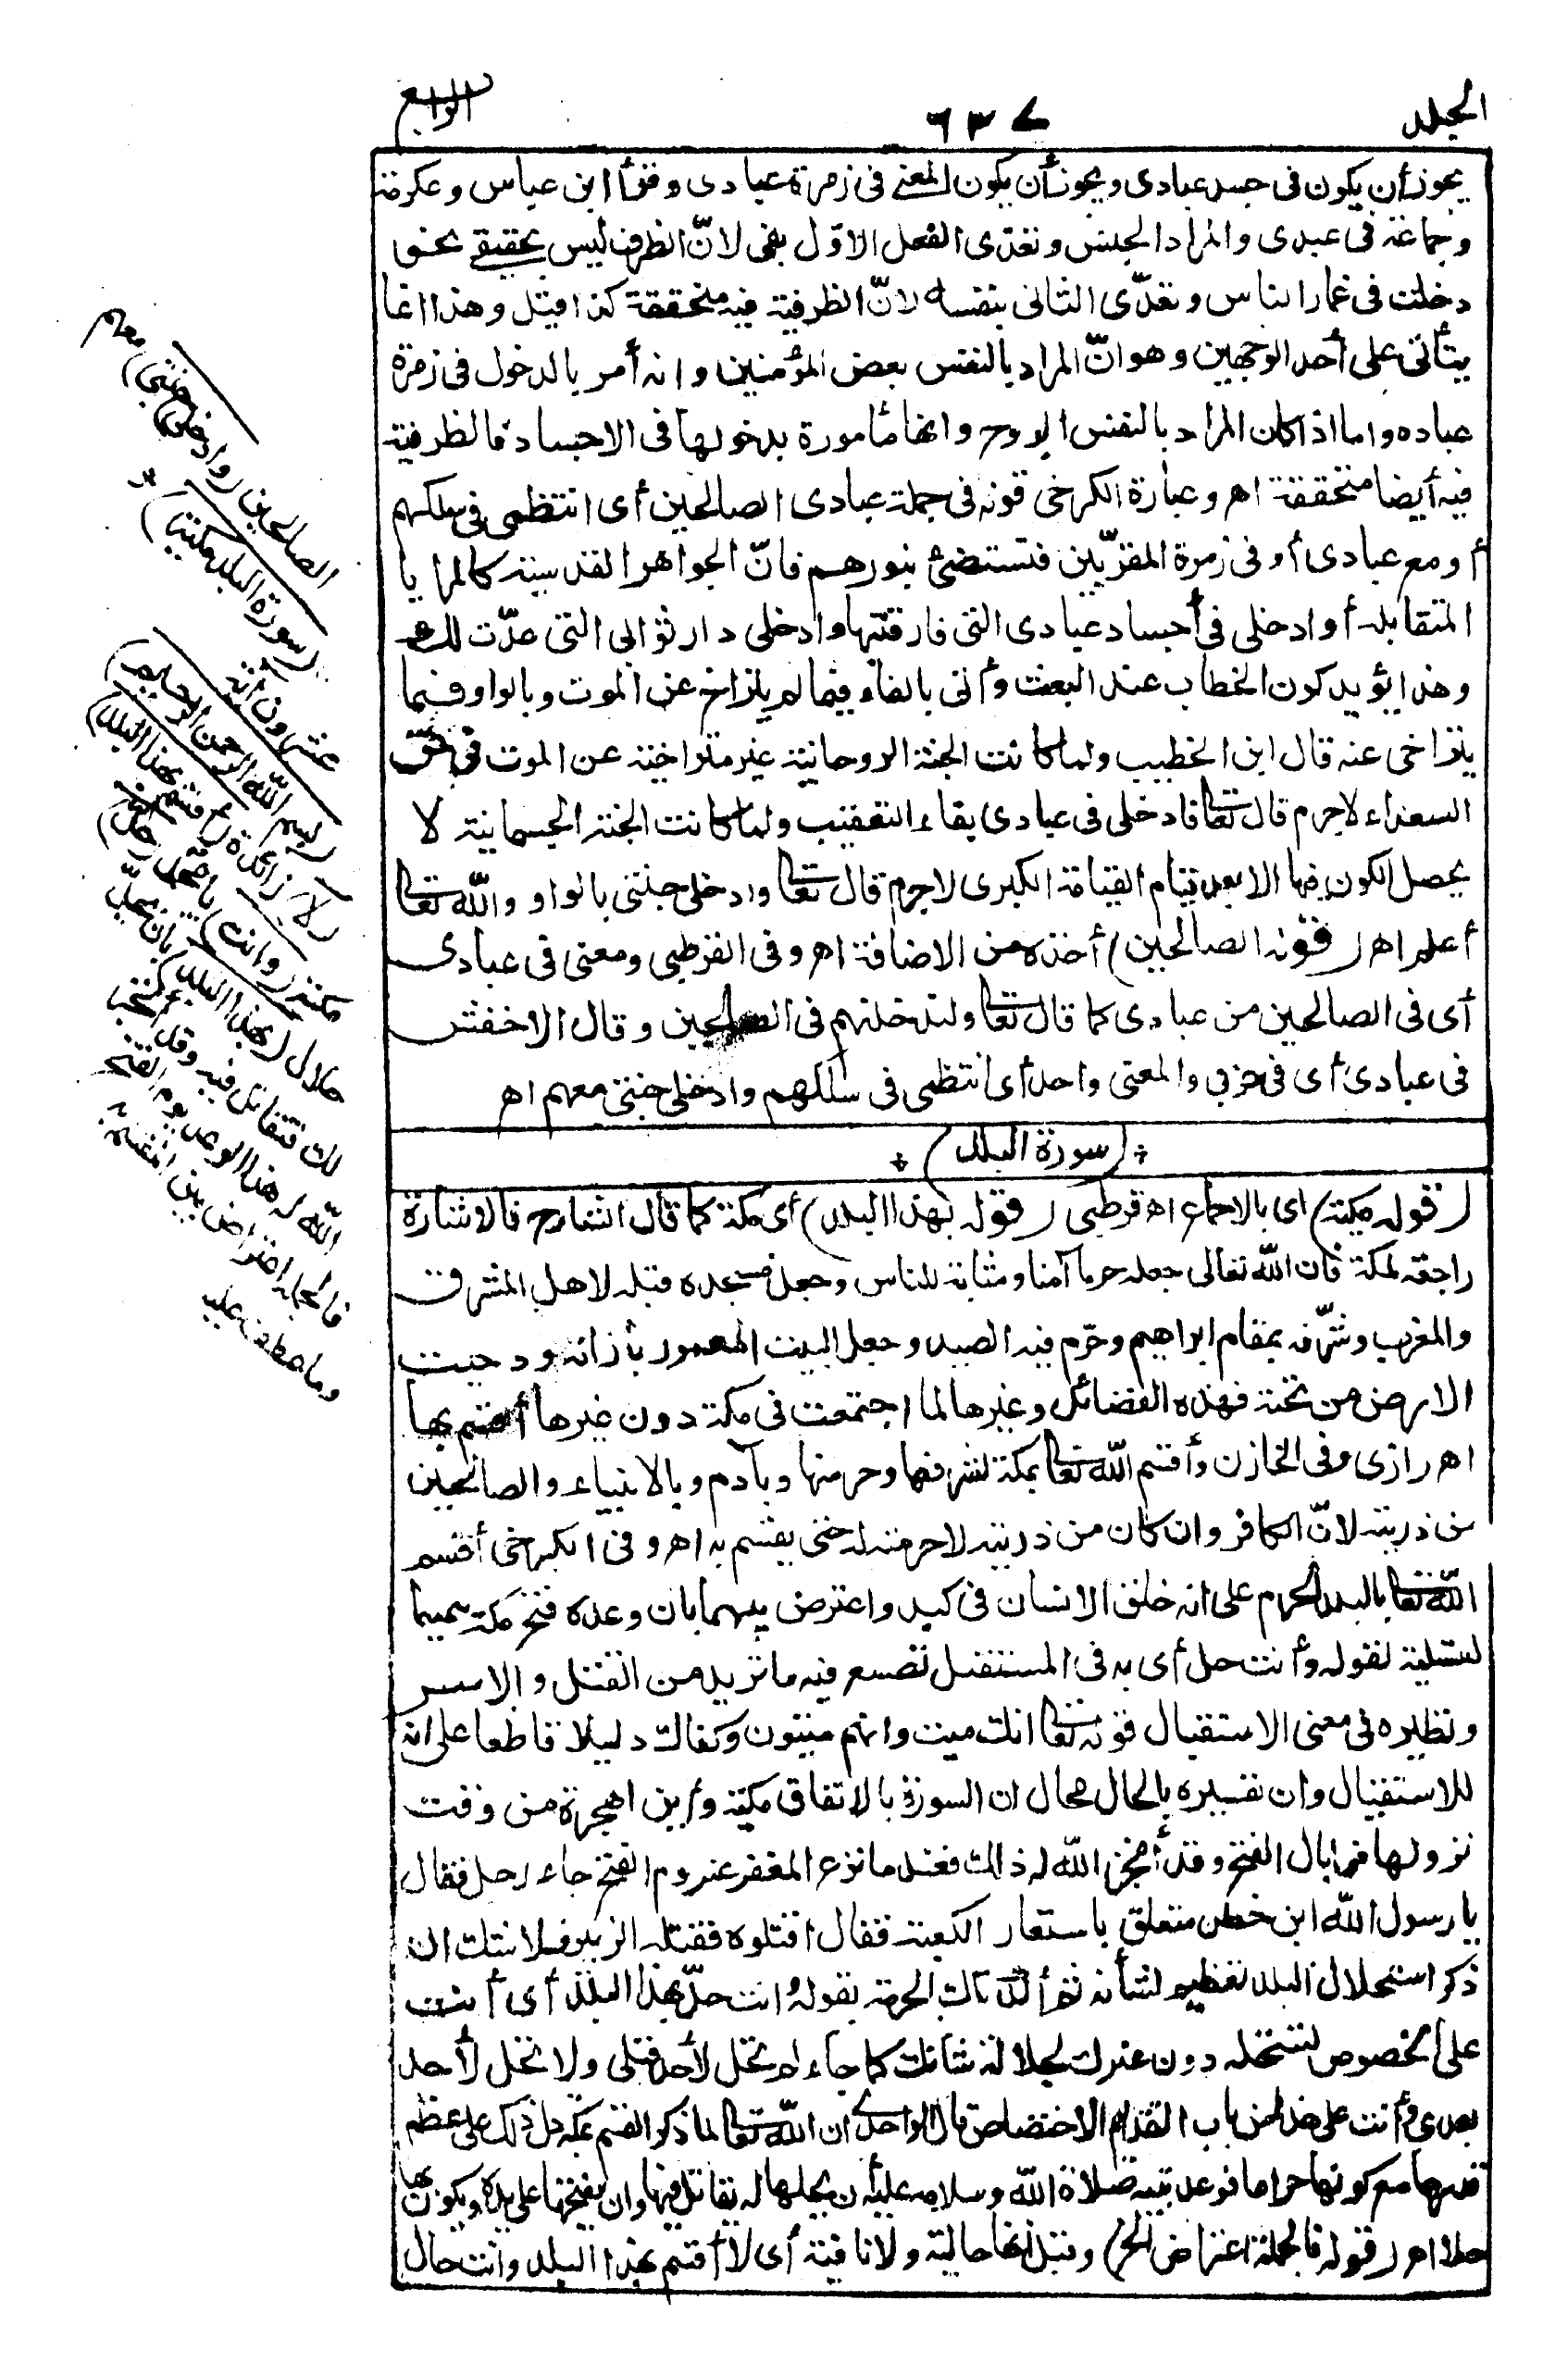 الجلد
٦٣٧
الرابع
يجوز أن يكون فى جسد عبادى ويجوز أن يكون المعنى فى زمرة عبادى وقرأ ابن عباس وعكرمة
وجماعة فى عبدى والمراد الجنس وتعدى الفعل الاوّل بفى لانّ الظرف ليس بحقيقى نحو
دخلت فى غمار الناس وتعدّى الثانى بنفسه لانّ الظرفية فيه متحققة كذا قيل وهذا انما
يتأتى على أحد الوجهين وهو انّ المراد بالنفس بعض المؤمنين وانه أمر بالدخول فى زمرة
عباده واما اذا كان المراد بالنفس الروح وانها مأمورة بدخولها فى الاجساد فالظرفية
فيه أيضا متحققة اهـ وعبارة الكرخى قوله فى جملة عبادى الصالحين أى انتظمى فى سلكهم
أو مع عبادى أو فى زمرة المقرّبين فتستضئ بنورهم فانّ الجواهر القدسية كالمرايا
المتقابلة أو ادخلى فى أجساد عبادى التى فارقتها وادخلى دار ثوابى التى عدّت لك
وهذا يؤيد كون الخطاب عند البعث وأتى بالفاء فيما لم يتراخ عن الموت وبالواو فيما
يتراخى عنه قال ابن الخطيب ولما كانت الجنة الروحانية غير متراخية عن الموت فى حق
السعداء لاجرم قال تعالى فادخلى فى عبادى بفاء التعقيب ولما كانت الجنة الجسمانية لا
يحصل الكون فيها الا بعد قيام القيامة الكبرى لاجرم قال تعالى وادخلى جنتى بالواو والله تعالى
أعلم اهـ (قوله الصالحين) أخذه من الاضافة اهـ وفى القرطبى ومعنى فى عبادى
أى فى الصالحين من عبادى كما قال تعالى ولندخلنهم فى الصالحين وقال الاخفش
فى عبادى أى فى حزبى والمعنى واحد أى انتظمى فى سلكهم وادخلى جنتى معهم اهـ
(سورة البلد)
(قوله مكية) اى بالاجماع اهـ قرطبى (قوله بهذا البلد) أى مكة كما قال الشارح فالاشارة
راجعة لمكة فان الله تعالى جعله حرما آمنا ومثابة للناس وجعل مسجده قبلة لاهل المشرق
والمغرب وشرّفه بمقام ابراهيم وحرّم فيه الصيد وجعل البيت المعمور بأزائه ودحيت
الارض من تحته فهذه الفضائل وغيرها لما اجتمعت فى مكة دون غيرها أقسم بها
اهـ رازى وفى الخازن وأقسم الله تعالى بمكة لشرفها وحرمتها وبآدم وبالانبياء والصالحين
من ذريته لانّ الكافر وان كان من ذريته لاحرمة له حتى يقسم به اهـ وفى الكرخى أقسم
الله تعالى بالبلد الحرام على انه خلق الانسان فى كبد واعترض بينهما بان وعده فتح مكة تتميما
لتسلية لقوله وأنت حل أى به فى المستقبل تصنع فيه ما تريد من القتل والاسر
ونظيره فى معنى الاستقبال قوله تعالى انك ميت وانهم ميتون وكفاك دليلا قاطعا على انه
للاستقبال وان تفسيره بالحال محال ان السورة بالاتفاق مكية وأين الهجرة من وقت
نزولها فما بال الفتح وقد أنجز الله له ذالك فعند ما نزع المغفر عنه يوم الفتح جاء رجل فقال
يا رسول الله ابن خطل متعلق باستعار الكعبة فقال اقتلوه فقتله الزبير فلا شك ان
ذكر استحلال البلد تعظيم لشأنه ثم أكد تلك الحرمة بقوله وانت حلّ بهذا البلد أى أنت
على الخصوص تستحله دون غيرك لجلالة شانك كما جاء لم تحل لأحد قبلى ولا تحل لأحد
بعدى وأنت على هذا من باب التقديم للاختصاص قال الواحدى ان الله تعالى لما ذكر القسم بمكة دل ذلك على عظم
قدرها مع كونها حراما فوعد نبيه صلاة الله وسلامه عليه أن يحلها له يقاتل فيها وان يفتحها على يده ويكون بها
حلا اهـ (قوله فالجملة اعتراض الخ) وقيل انها حالية ولا نافية أى لا أقسم بهذا البلد وانت حال
الصالحين (وادخلى جنتى) معهم
(سورة البلد مكية)
عشرون آية
(بسم الله الرحمن الرحيم)
(لا) زائدة (أقسم بهذا البلد)
مكة (وأنت) يا محمد (حل)
حلال (بهذا البلد) بان يحل
لك فتقاتل فيه وقد أنجز
الله له هذا الوعد يوم الفتح
فالجملة اعتراض بين المقسم به
وما عطف عليه